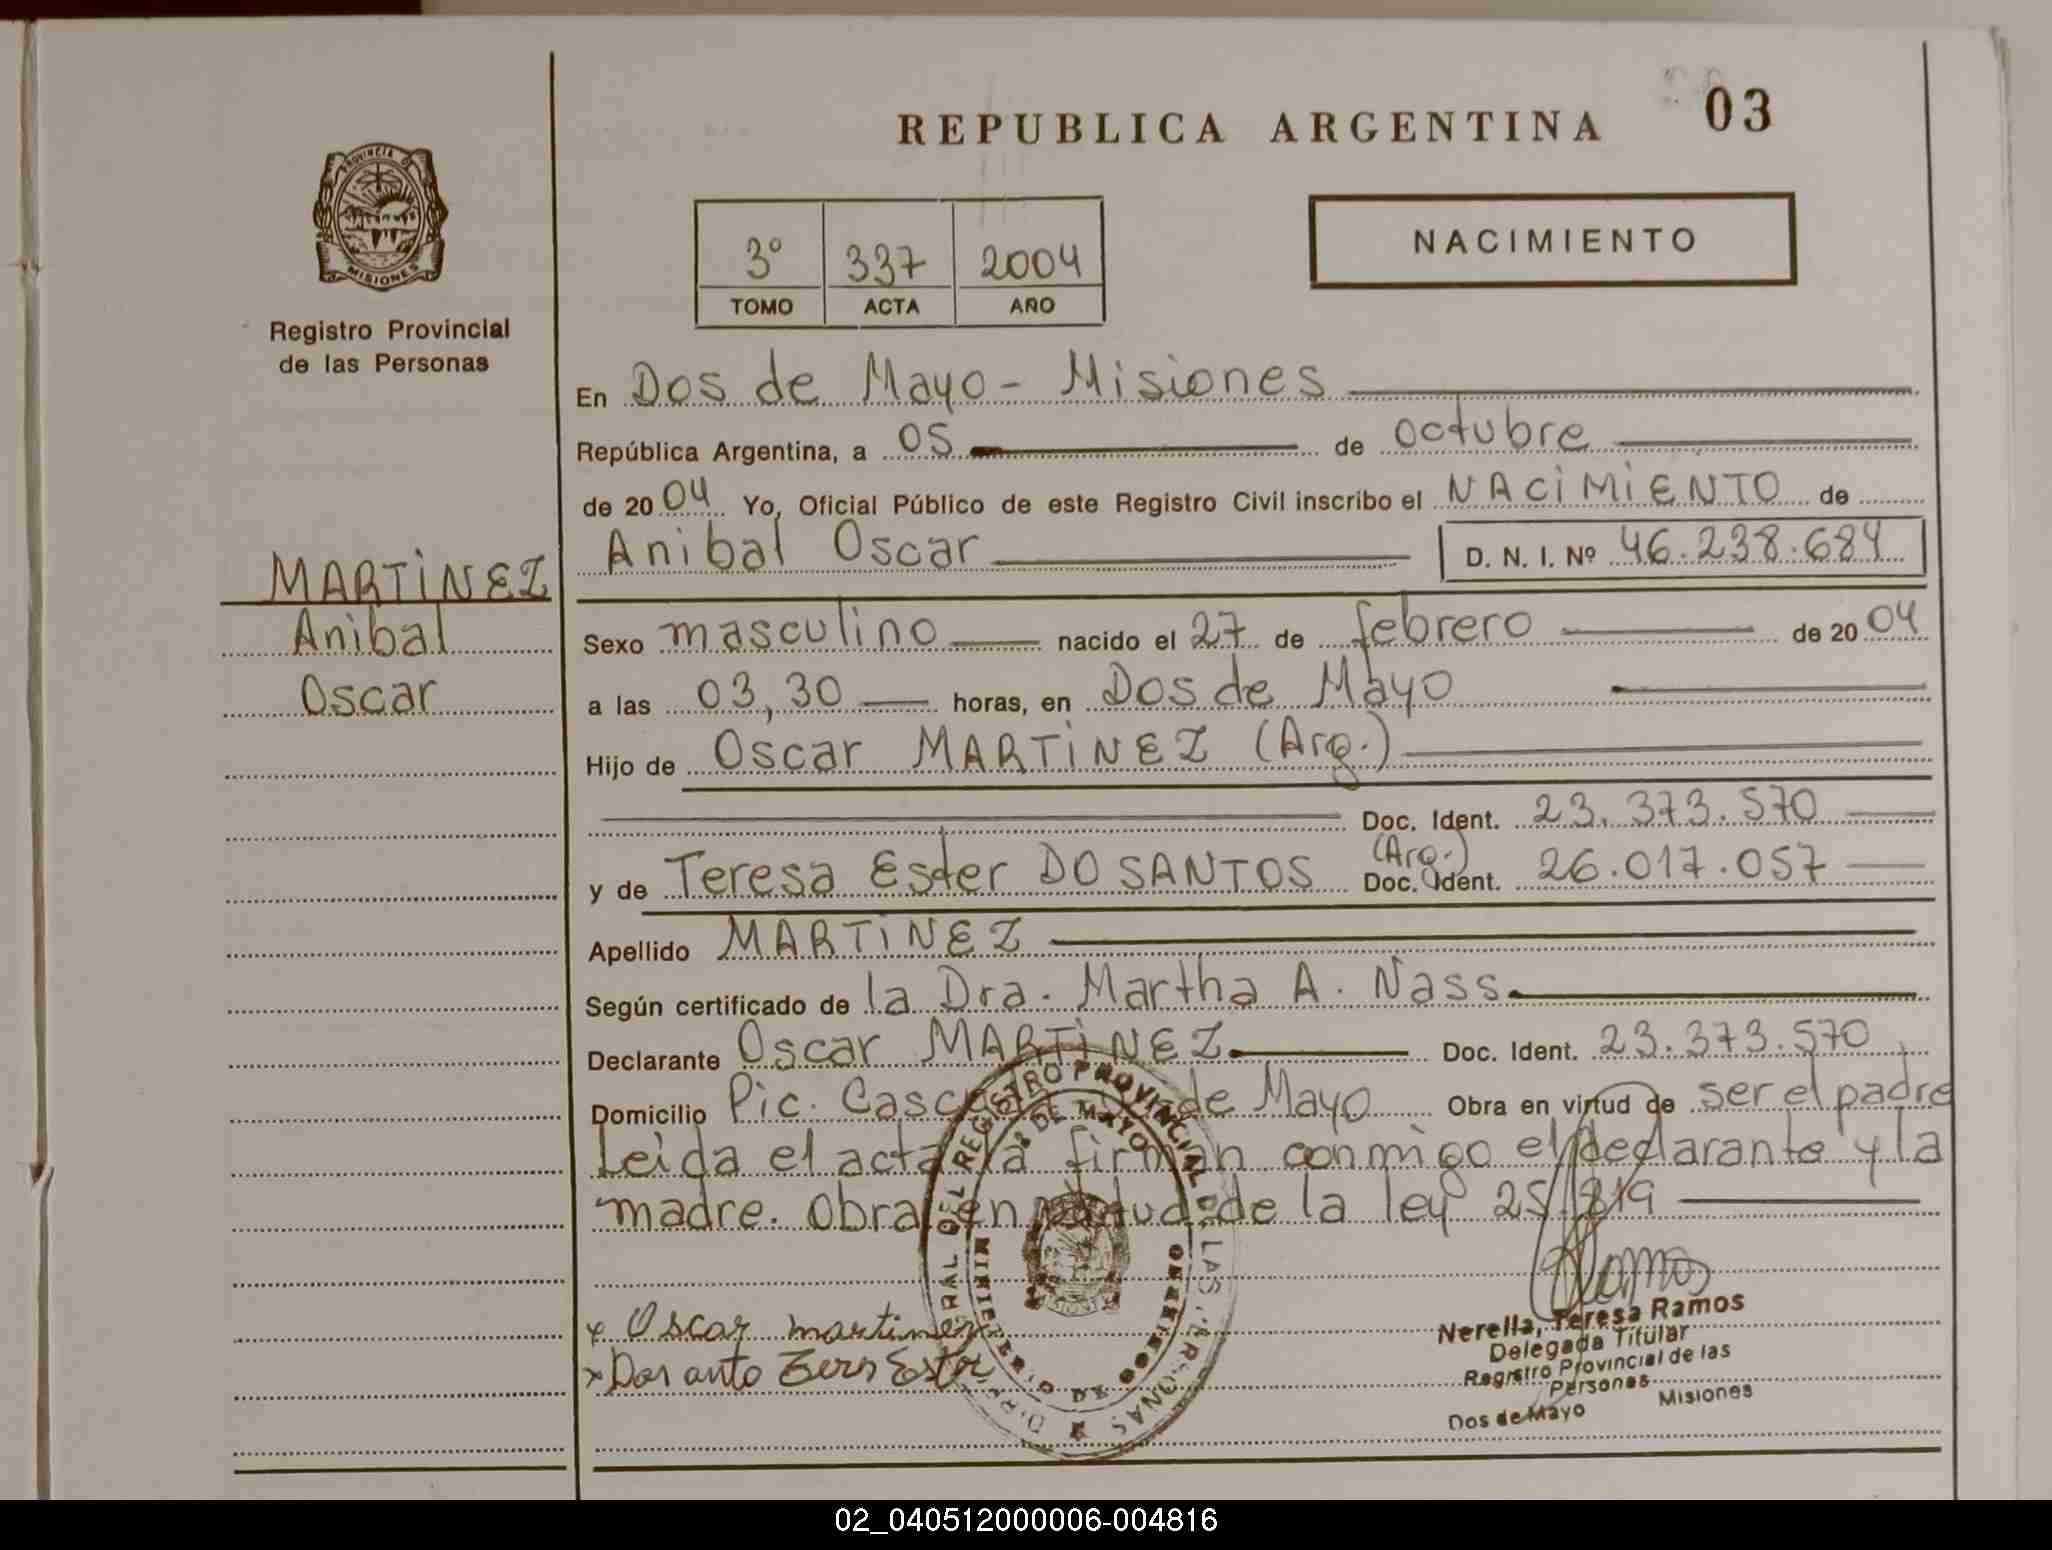 REPUBLICA ARGENTINA 03
PROVINCIA DE
MISIONES
Registro Provincial
de las Personas
3° 337 2004
TOMO ACTA AÑO
NACIMIENTO
En Dos de Mayo - Misiones
República Argentina, a 05 de octubre
de 2004 Yo, Oficial Público de este Registro Civil inscribo el NACIMIENTO de
Anibal Oscar D. N. I. Nº 46.238.684
MARTINEZ
Anibal
Oscar
Sexo masculino nacido el 27 de febrero de 2004
a las 03,30 horas, en Dos de Mayo
Hijo de Oscar MARTINEZ (Arg.)
Doc. Ident. 23.373.570
y de Teresa Ester DO SANTOS (Arg.) Doc. Ident. 26.017.057
Apellido MARTINEZ
Según certificado de la Dra. Martha A. Nass
Declarante Oscar MARTINEZ Doc. Ident. 23.373.570
Domicilio Pic. de Mayo Obra en virtud de ser el padre
Leida el acta la firman conmigo el declarante y la
madre. Obra en virtud de la ley 25.819
x Oscar martinez
Nerella, Teresa Ramos
Delegada Titular
Registro Provincial de las
Personas
Dos de Mayo Misiones
02_040512000006-004816